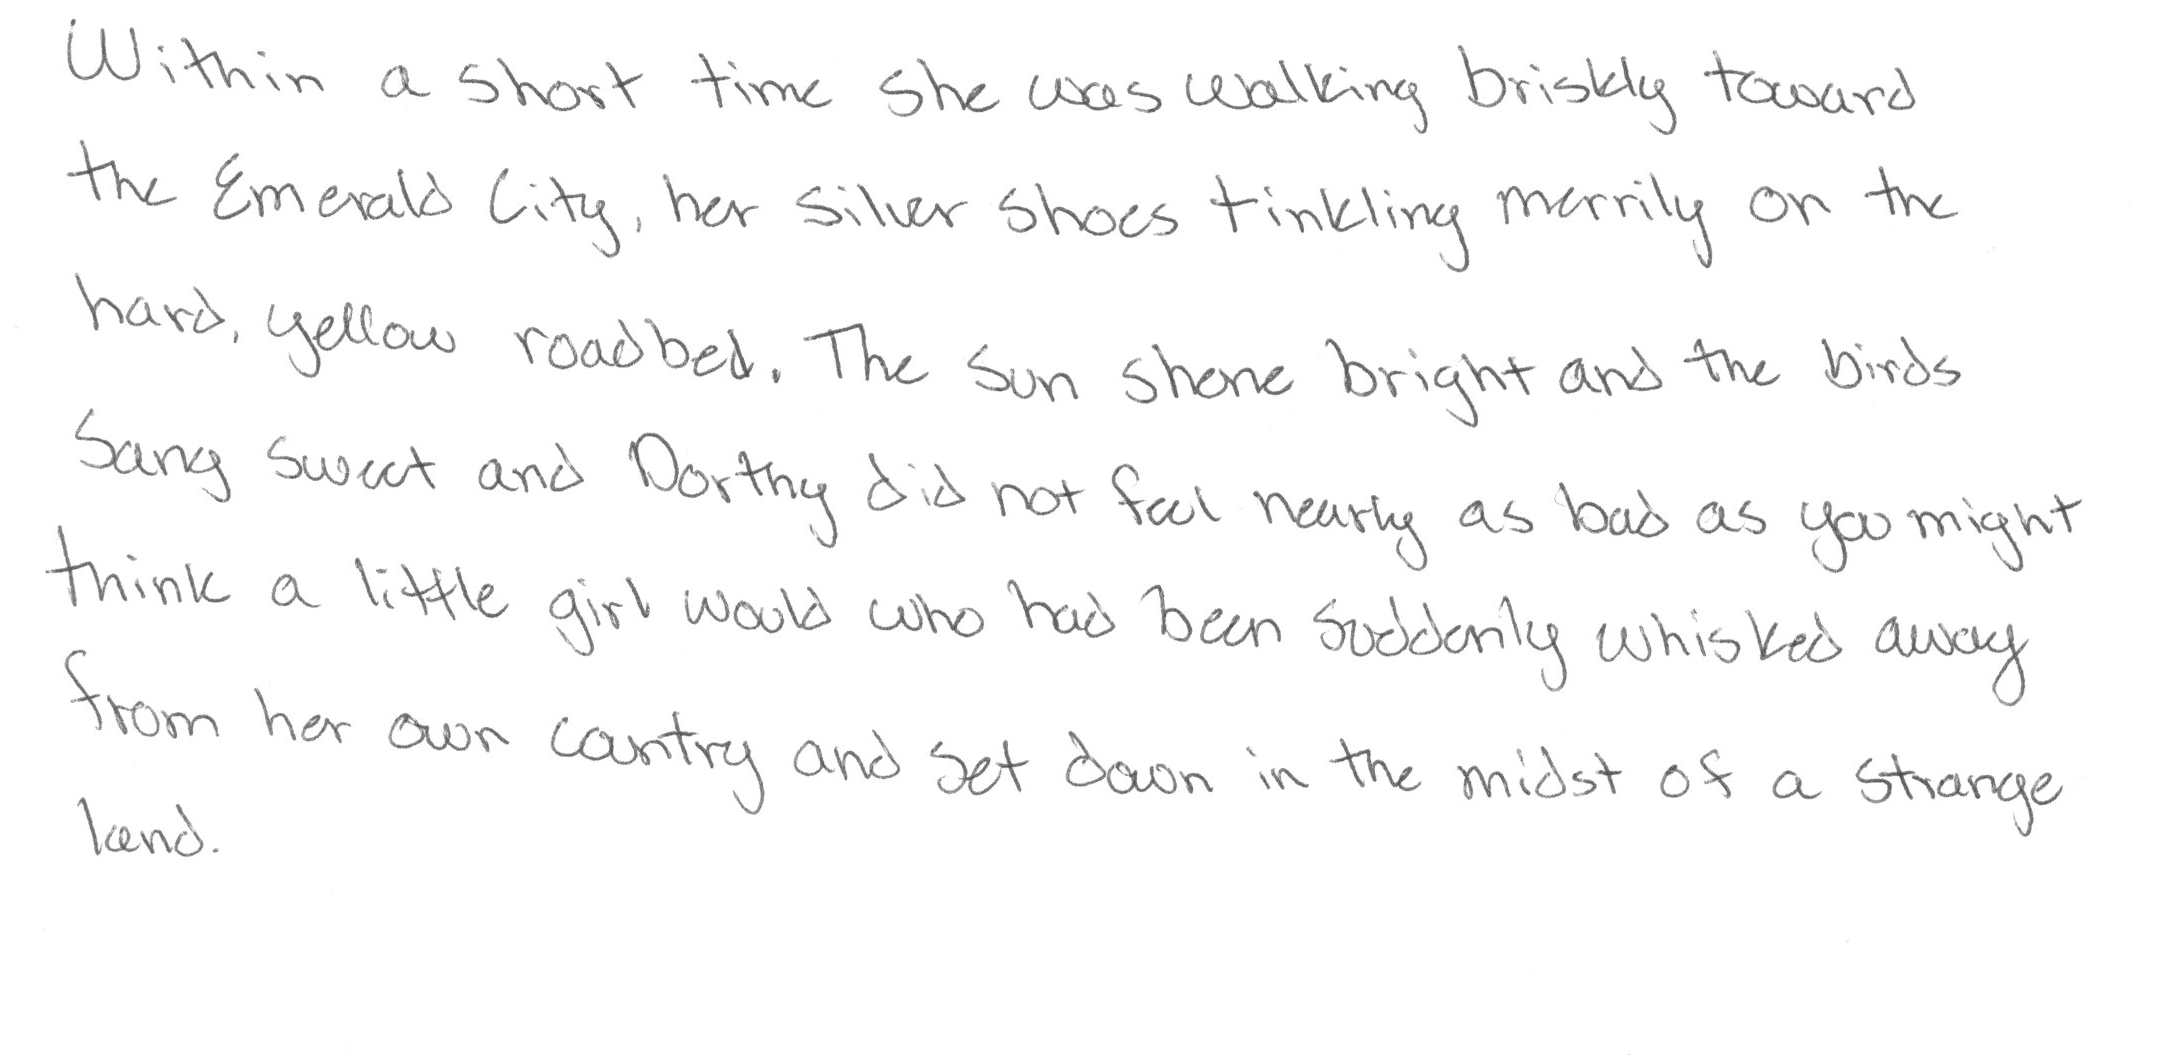 Within a short time she was walking briskly toward
the Emerald City, her silver shoes tinkling merrily on the
hard, yellow roadbed. The sun shone bright and the birds
sang sweet and Dorthy did not feel nearly as bad as you might
think a little girl would who had been suddenly whisked away
from her own country and set down in the midst of a strange
land.